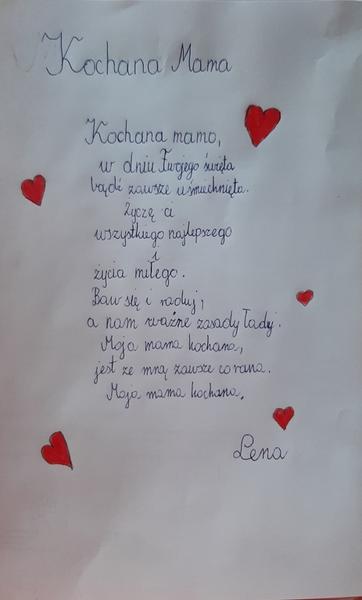 Kochana Mama
Kochana mamo,
w dniu Twojego święta
bądź zawsze uśmiechnięta.
Życzę ci
wszystkiego najlepszego
i
życia miłego.
Baw się i raduj,
a nam ważne zasady ładuj.
Moja mama kochana,
jest ze mną zawsze co rana.
Moja mama kochana.
Lena